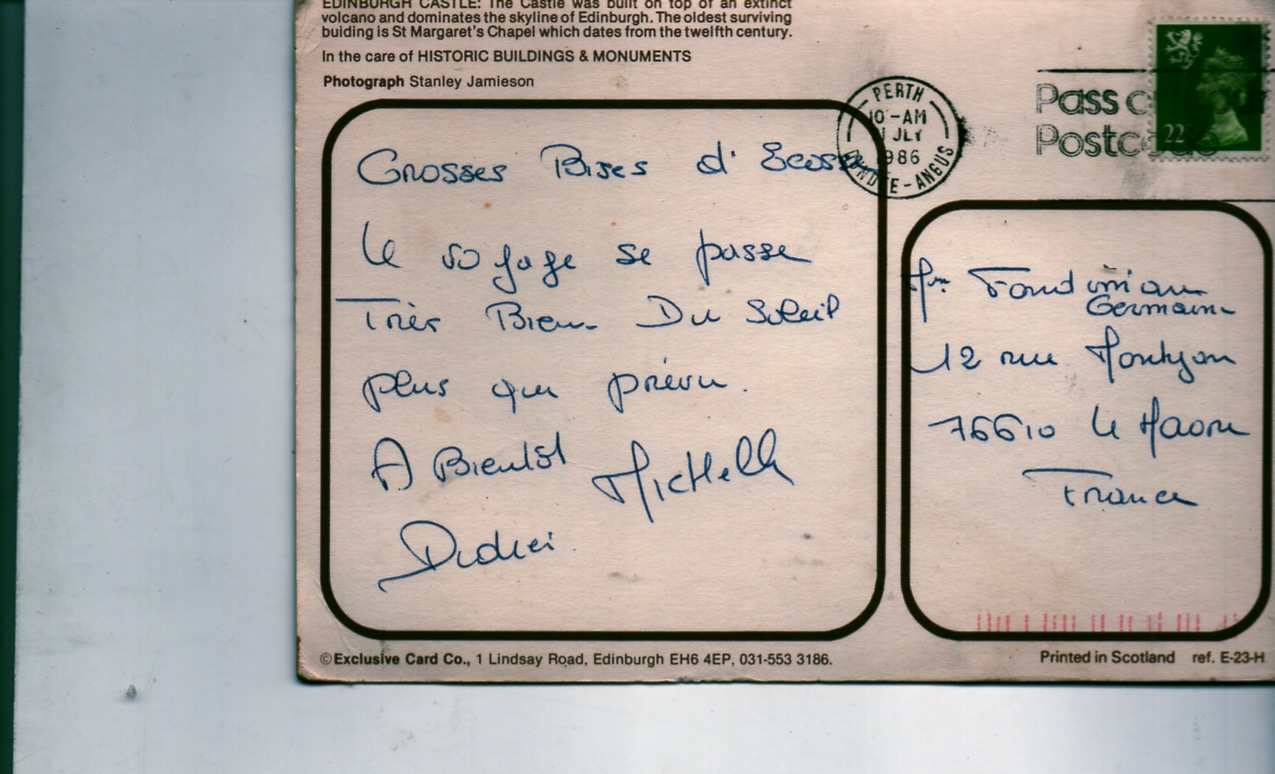 EDINBURGH CASTLE: The Castle was built on top of an extinct
volcano and dominates the skyline of Edinburgh. The oldest surviving
buiding is St Margaret's Chapel which dates from the twelfth century.
In the care of HISTORIC BUILDINGS & MONUMENTS
Photograph Stanley Jamieson
PERTH
10 - AM
JLY
1986
DUNDEE - ANGUS
Pass
Postcode
22
Grosses Bises d'Ecosse
Le voyage se passe
Très Bien Du Soleil
plus que prévu.
A Bientôt Michelle
Didier
Germaine
12 rue Montyon
76610 Le Havre
France
©Exclusive Card Co., 1 Lindsay Road, Edinburgh EH6 4EP, 031-553 3186.
Printed in Scotland ref. E-23-H